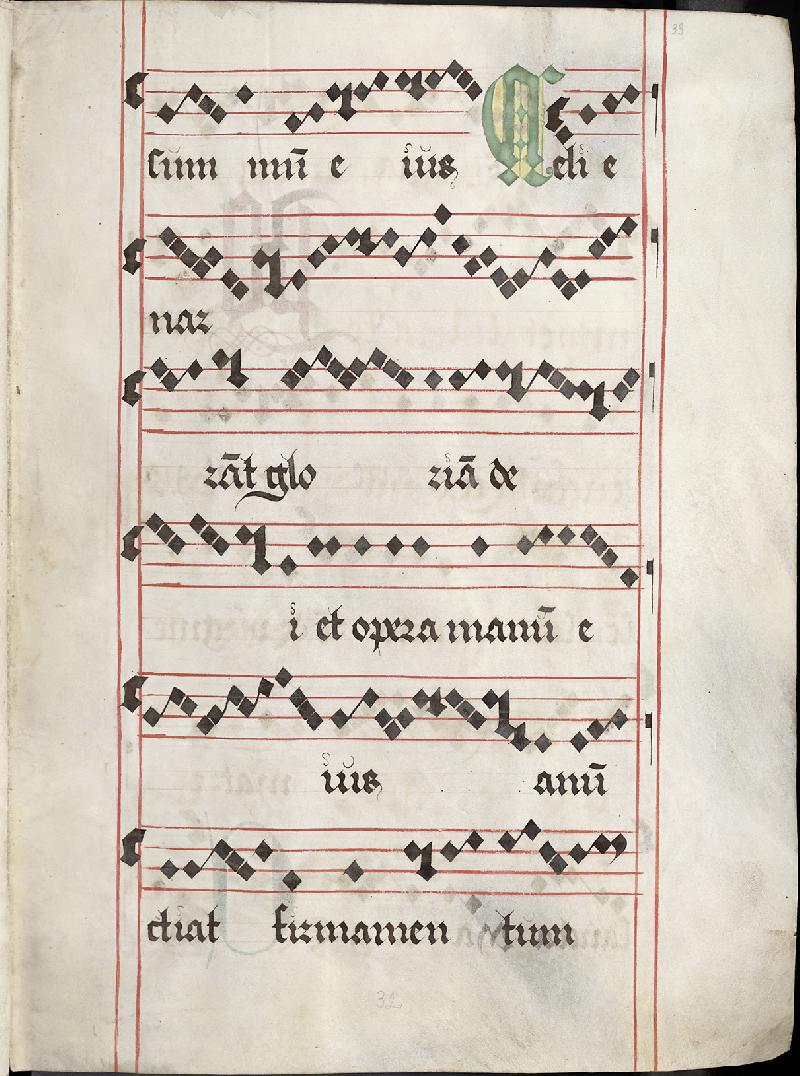 39
sum mū e ius Celi e
nar
rāt glo riā de
i et opera manū e
ius anū
ctiat firmamen tum
32